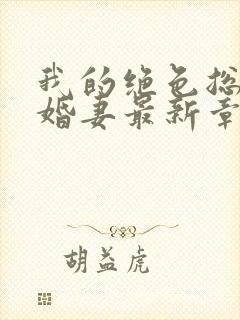 我的绝色总
婚妻最新章
胡益虎